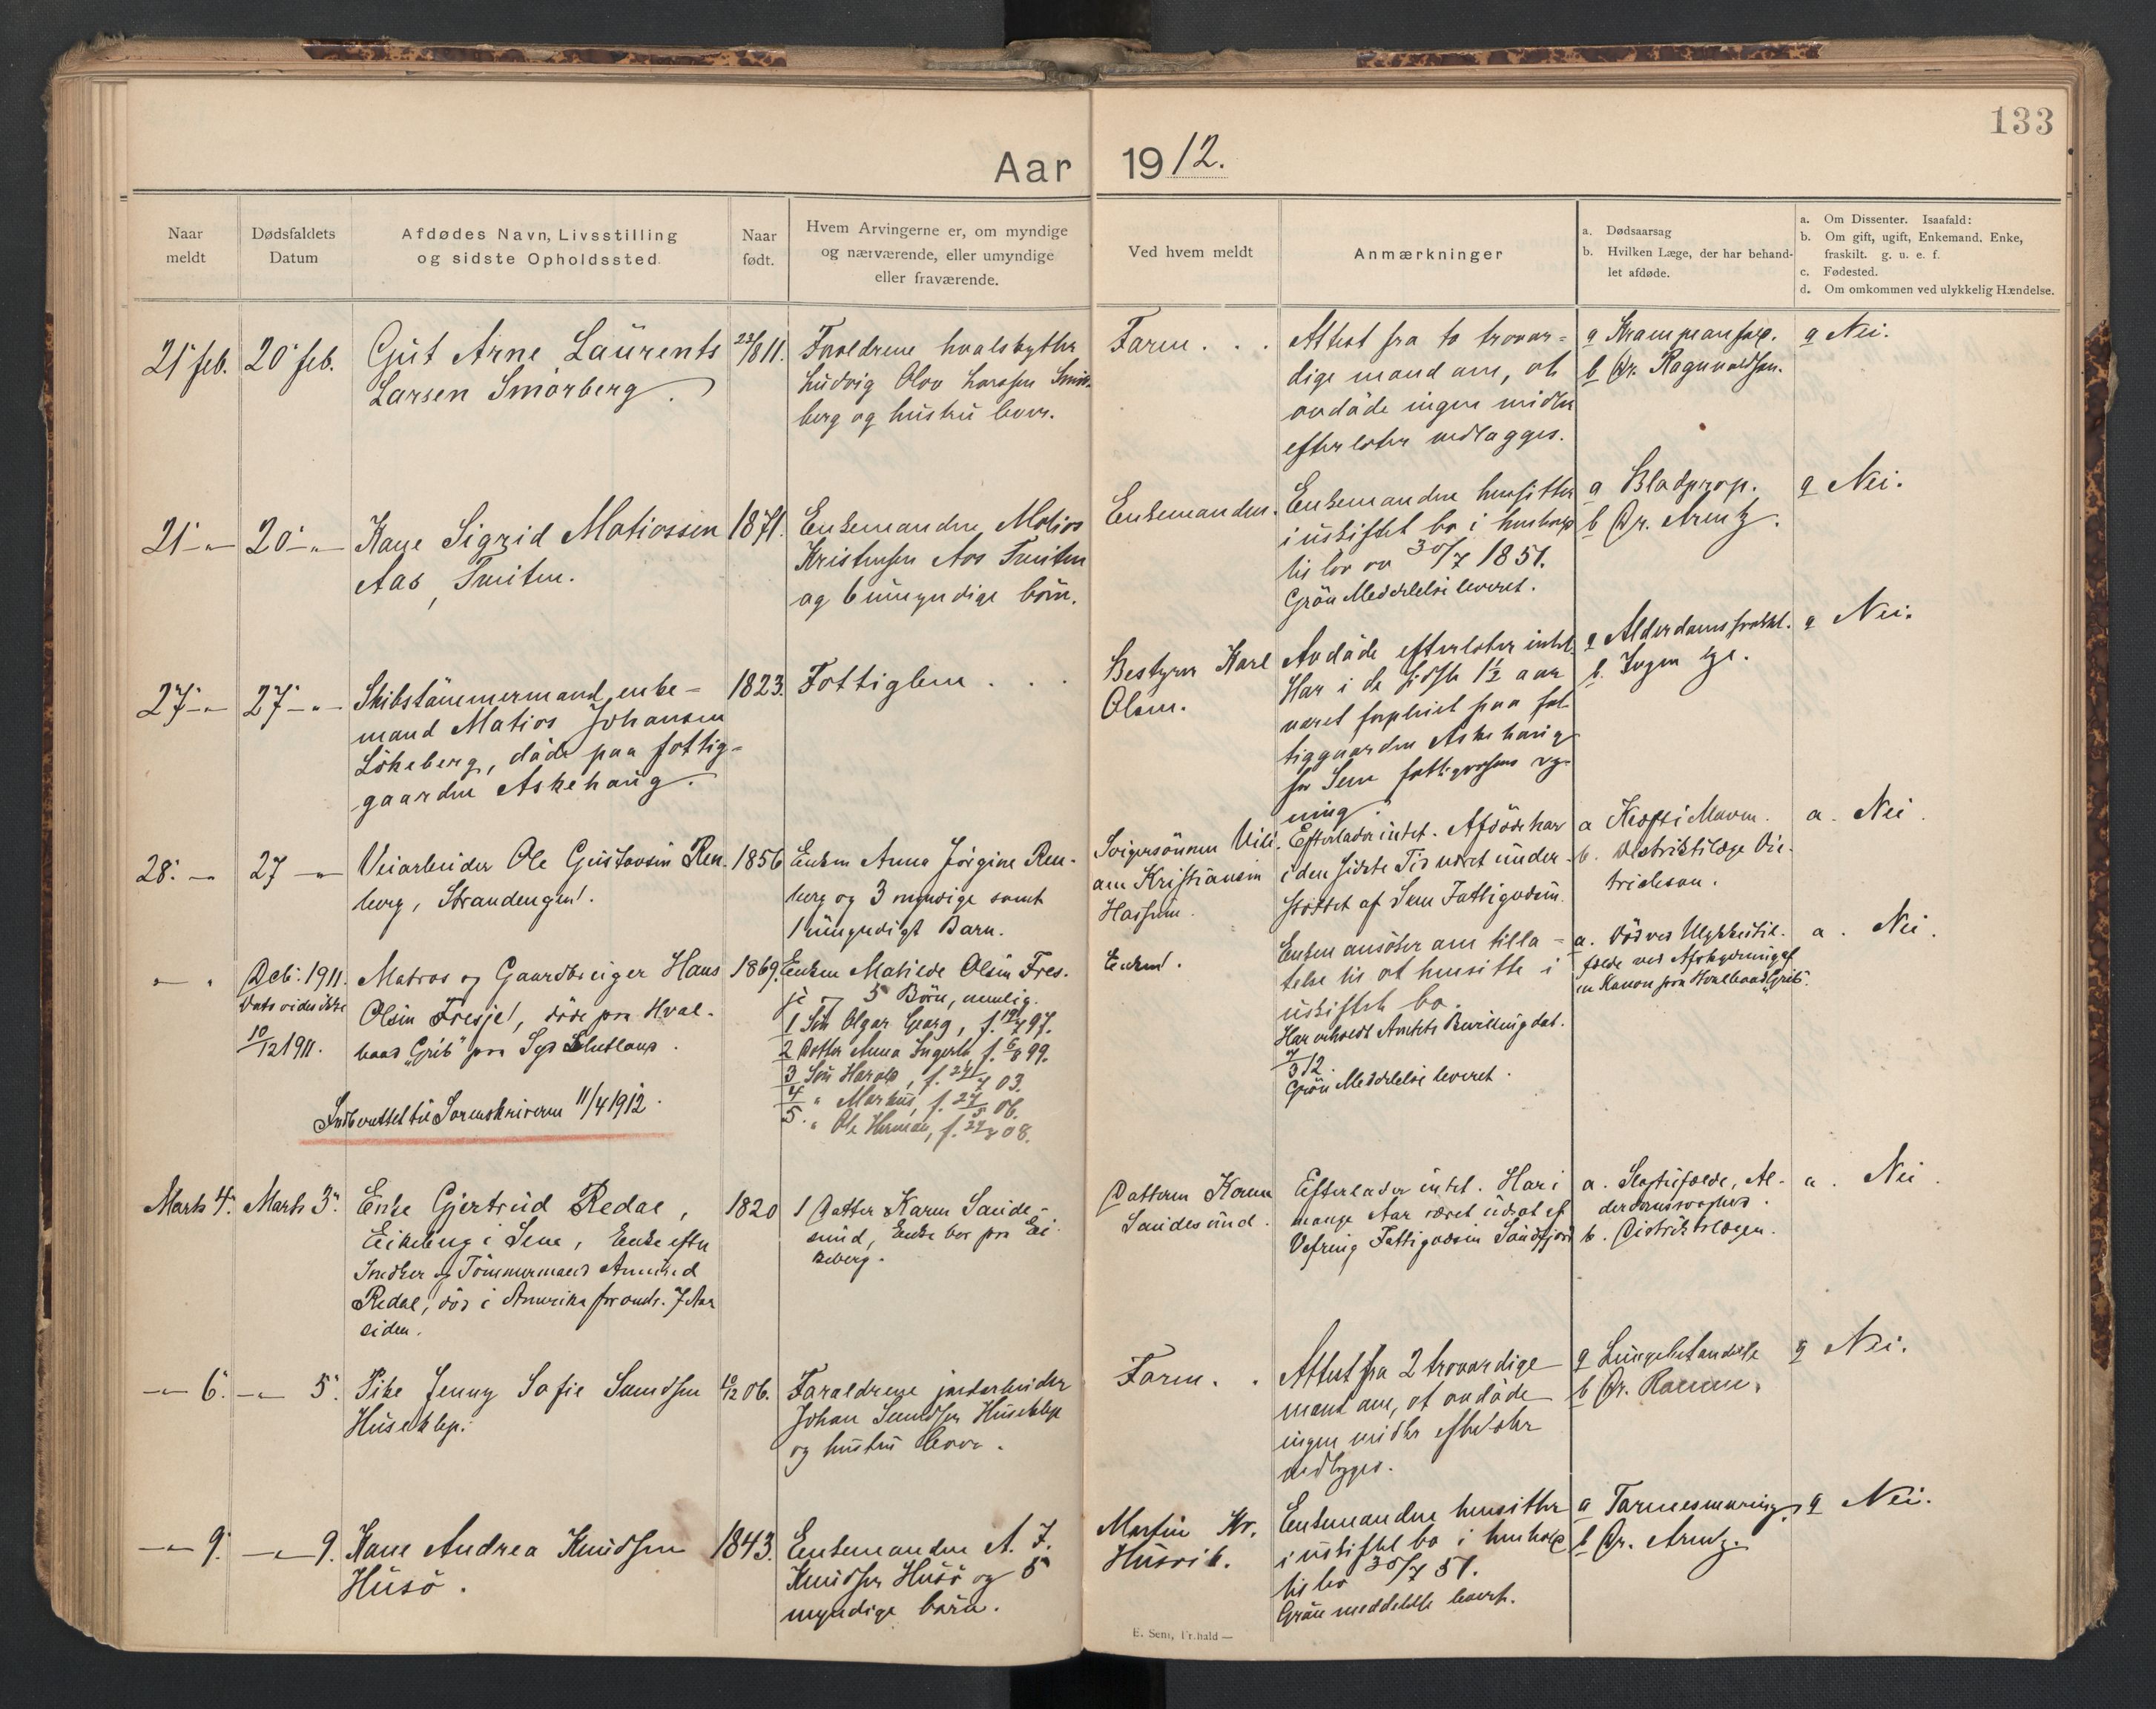 133
Aar 1912.
Naar meldt
Dødsfaldets Datum
Afdødes Navn, Livsstilling og sidste Opholdssted
Naar født.
Hvem Arvingerne er, om myndige og nærværende, eller umyndige eller fraværende.
Ved hvem meldt
Anmærkninger
a. Dødsaarsag
b. Hvilken Læge, der har behandlet afdøde.
a. Om Dissenter. Isaafald:
b. Om gift, ugift, Enkemand. Enke, fraskilt. g. u. e. f.
c. Fødested.
d. Om omkommen ved ulykkelig Hændelse.
21 feb.
20 feb.
Gut Arne Laurents
Larsen Smørberg.
23/8 11.
Forældrene hvalskytter
Ludvig Olov Larssen Smør-
berg og hustru lever.
Faren . . .
Attest fra to trovær-
dige mænd om, at
avdøde ingen midler
efterlater vedlægges.
a
b Dr. Ragnvaldsen.
a Nei.
21 -"-
20 -"-
Kone Sigrid Matiassen
Aas, Tveiten.
1871.
Enkemanden Matias
Kristensen Aas Tveiten
og 6 umyndige børn.
Enkemanden.
Enkemanden hensitter
i uskiftet bo i henhold
til lov av 30/7 1851.
Grøn Meddelelse leveret.
a Blodprop.
b Dr. Arentz.
a Nei.
27 -"-
27 -"-
Skibstømmermand, enke-
mand Matias Johansen
Løkeberg, døde paa fattig-
gaarden Askehaug.
1823.
Fattiglem . . .
Bestyrer Karl
Olsen.
Avdøde efterlater intet.
Har i de sidste 1½ aar
været forpleiet paa fat-
tiggaarden Askehaug
for Sem fattigvæsens reg-
ning.
a Alderdomssvakh.
b. Ingen lge.
a Nei.
28. -"-
27 -"-
Veiarbeider Ole Gustavsen Ren-
berg, Strandengen.
1856
Enken Anna Jørgine Ren-
berg og 3 myndige samt
1 umyndigt Barn.
Svigersønnen Vili-
am Kristiansen
Efterlader intet. Afdøde har
i den sidste Tid været under-
støttet af Sem Fattigvæsen.
a Kræft i Maven.
b. Distriktslæge Die-
trichson.
a. Nei.
-"-
Decb. 1911.
Dato vides ikke
10/12 1911.
Matros og Gaardbruger Hans
Olsen Fresje, døde paa Hval-
baad "Grib" paa Syd Shetland.
1869.
Enken Matilde Olsen Fres-
je og 5 Børn, nemlig:
1 Søn Olgar Georg, f. 19/7 97.
2 Datter Anna Ingerta, f. 6/8 99.
3 Søn Harald, f. 24/7 03.
4 " Markus, f. 27/5 06.
5. " Ole Herman, f. 24/8 08.
Enken.
Enken ansøker om tilla-
telse til at hensitte i
uskiftet bo.
Har erholdt Amtets Bevilling dat.
7/3 12.
Grøn Meddelelse leveret.
a. Død ved Ulykkestil-
fælde ved Afskydning af
en Kanon paa Hvalbaad "Grib".
a. Nei.
Indberettet til Sorenskriveren 11/4 1912.
Marts 4.
Marts 3.
Enke Gjertrud Redal,
Eikeberg i Sem, Enke efter
Snedker og Tømmermand Amund
Redal, død i Amerika for omtr. 7 Aar
siden.
1820
1 Datter Karen Sande-
sund, Enke bor paa Ei-
keberg.
Datteren Karen
Sandesund.
Efterlader intet. Har i
mange Aar været understøttet af
Vefring Fattigvæsen Søndfjord
a. Slagtilfælde, Al-
derdomssvaghed.
b. Distriktslægen.
a. Nei.
-"- 6.
-"- 5.
Pike Jenny Sofie Samdsen
Huseklep.
10/12 06.
Forældrene jordarbeider
Johan Samdsen Huseklep
og hustru lever.
Faren . .
Attest fra 2 troværdige
mænd om, at avdøde
ingen midler efterlater
vedlægges.
a Lungebetændelse
b Dr. Ramm.
a Nei.
-"- 9.
-"- 9.
Kone Andrea Knudsen
Husø.
1843.
Enkemanden A. J.
Knudsen Husø og 5
myndige børn.
Martin Kr.
Husvik.
Enkemanden hensitter
i uskiftet bo i henhold
til lov 30/7 51.
Grøn meddelelse levert.
a Tarmesnøring.
b Dr. Arentz.
a Nei.
E. Sem, Fr.hald —